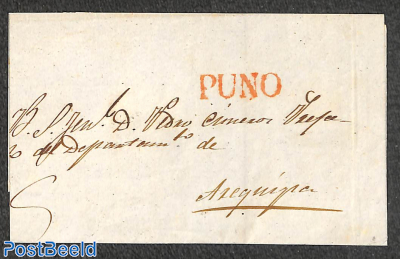 PUNO
B. S. Jen.l D. Pedro Cisneros Prefec
to del Departam.to de
Arequipa
© PostBeeld